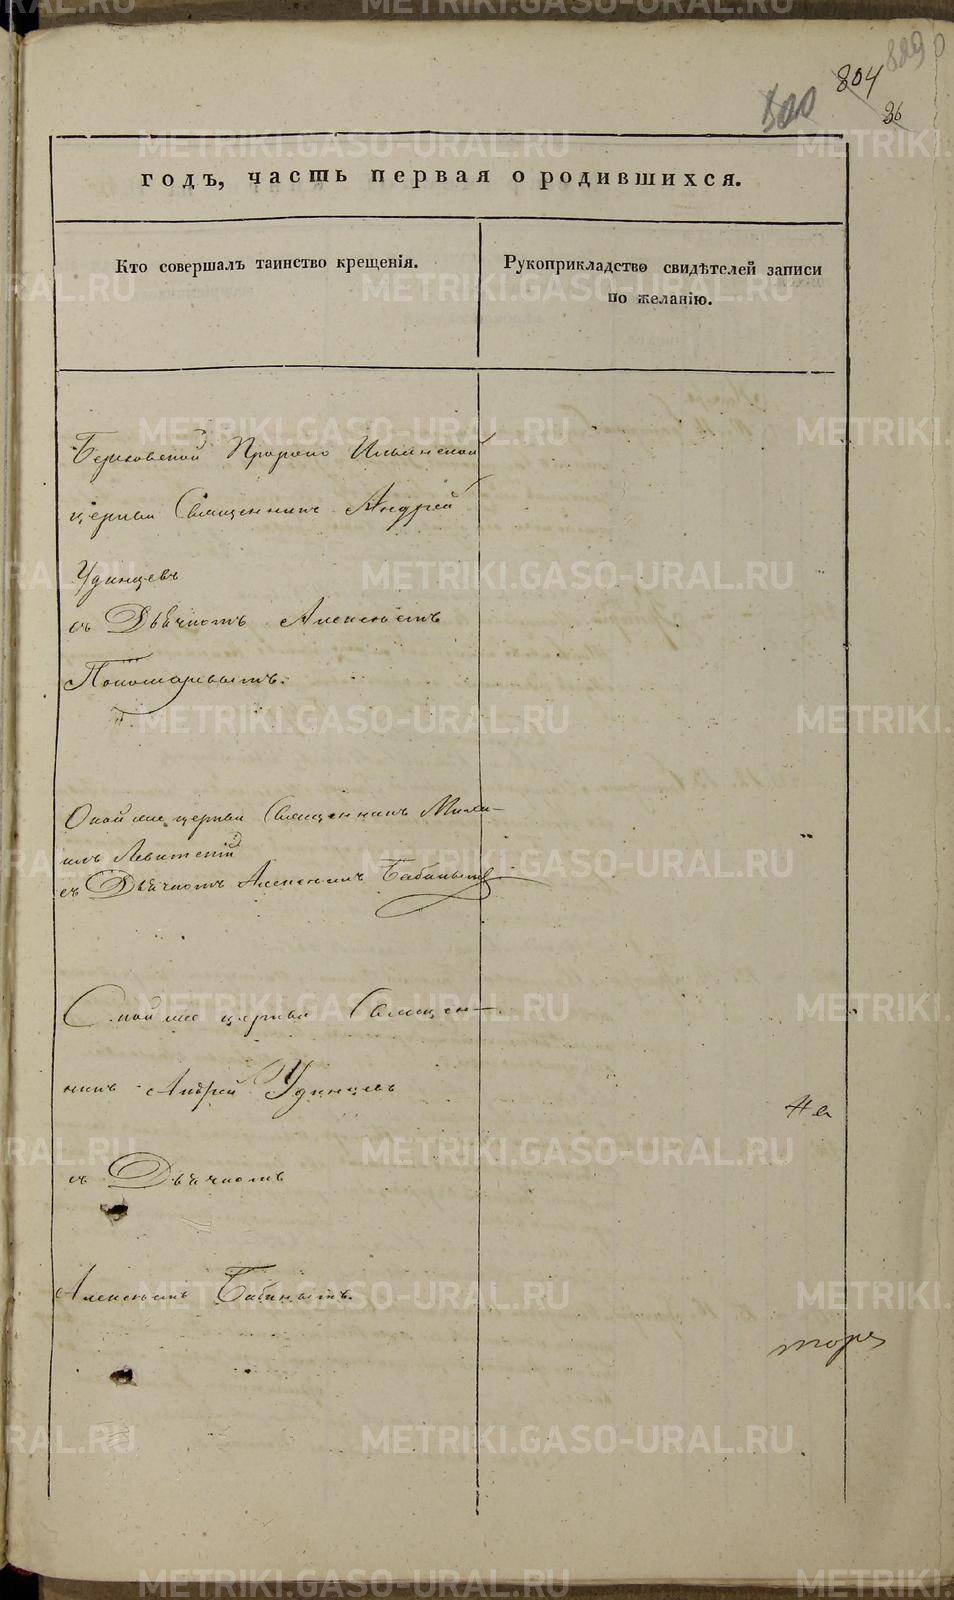 889
804
800
36
годъ, часть первая о родившихся.
Кто совершалъ таинство крещенія.
Рукоприкладство свидѣтелей записи
по желанію.
Пророко Ильинской
церкви Священникъ Андрей
Удинцевъ
съ Дьячкомъ Алексѣемъ
Пономаревымъ.
церкви Священникъ Миха-
илъ Левитскій
съ Дьячкомъ Алексѣемъ Бабинымъ
церкви Священ-
никъ Андрей Удинцевъ
На
съ Дьячкомъ
Алексѣемъ Бабинымъ.
METRIKI.GASO-URAL.RU